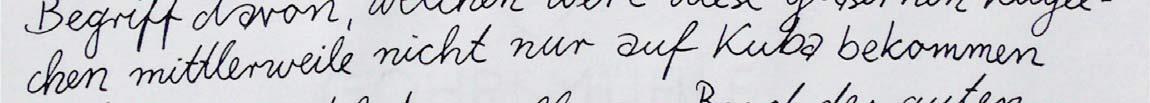 Begriff davon, welchen Wert diese gläsernen Kügel-
chen mittlerweile nicht nur auf Kuba bekommen
der guten